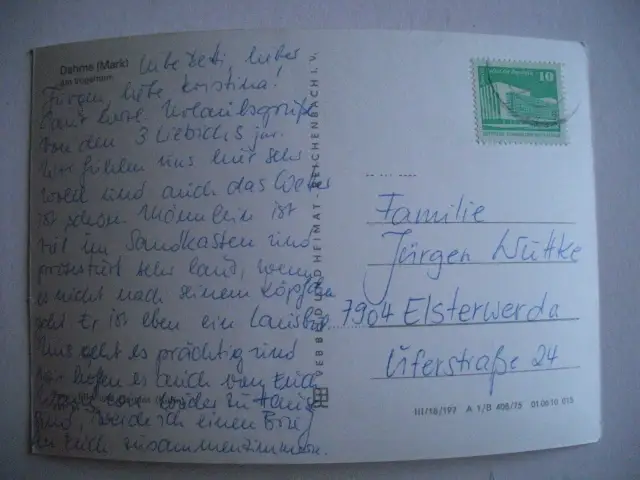 Dahme (Mark)
Am Vogelturm
Liebe Betti, lieber
Jürgen, liebe Kristina!
Ganz herzl. Urlaubsgrüße
von den 3 Liebichs jun.
Wir fühlen uns hier sehr
wohl und auch das Wetter
ist schön. Männlein ist
viel im Sandkasten und
protestiert sehr laut, wenn
es nicht nach seinem Köpfchen
geht. Er ist eben ein Lausbub.
Uns geht es prächtig und
wir hoffen es auch von Euch
wieder zu Hause
sind, werde ich einen Brief
an Euch zusammenzimmern.
VEB BILD UND HEIMAT · REICHENBACH I. V.
10
Familie
Jürgen Wuttke
7904 Elsterwerda
Uferstraße 24
III/18/197 A 1/B 408/75 01 06 10 015